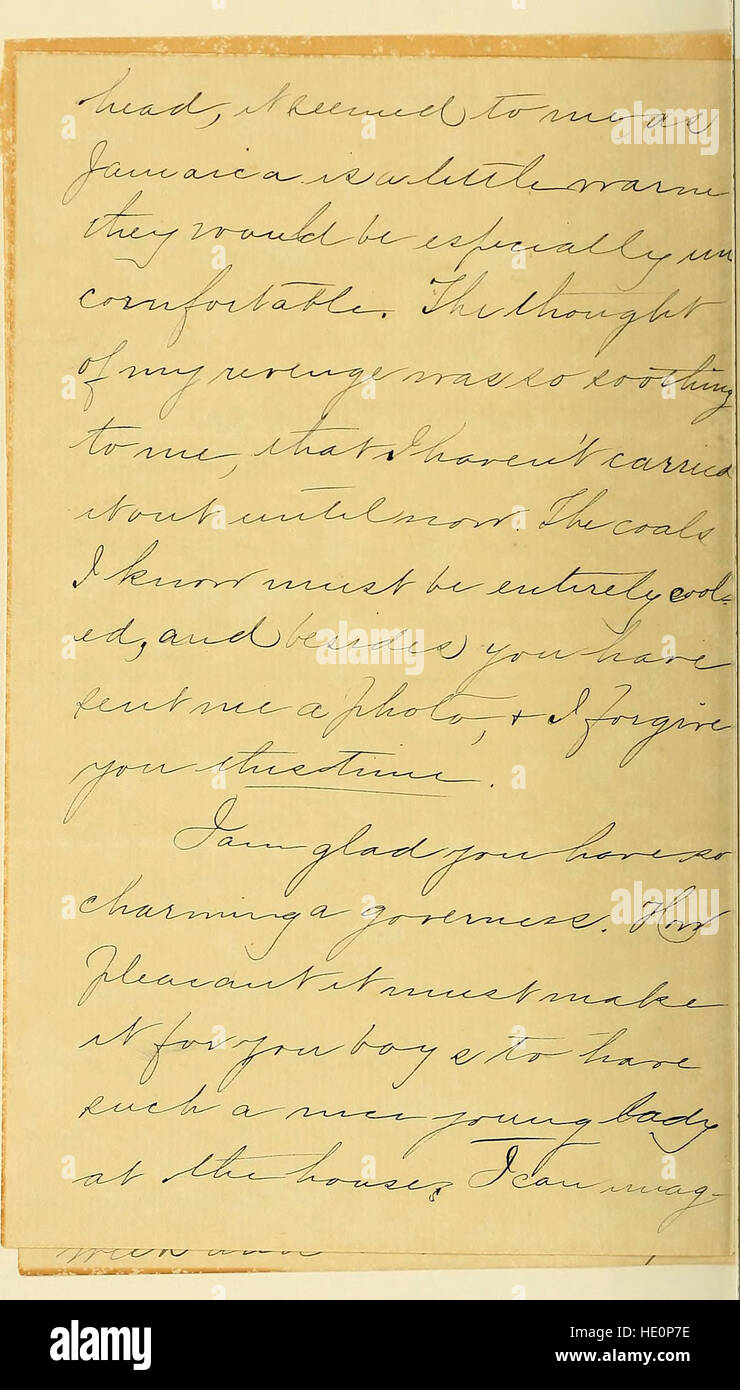 head, it seemed to me as
Jamaica is a little warm
they would be especially un
comfortable. The thought
of my revenge was so soothing
to me, that I haven't carried
it out until now. The coals
I know must be entirely cool=
ed, and besides you have
sent me a photo, & I forgive
you this time.
I am glad you have so
charming a governess. How
pleasant it must make
it for you boys to have
such a nice young lady
at the house. I can imag-
alamy
alamy stock photo
HE0P7E
www.alamy.com